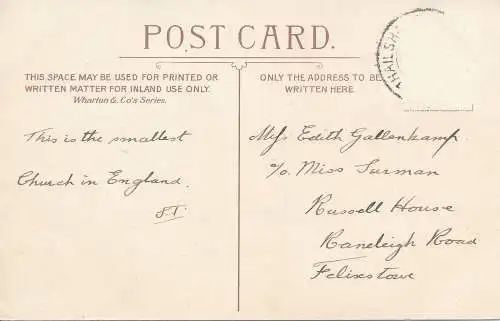 POST CARD.
THIS SPACE MAY BE USED FOR PRINTED OR
WRITTEN MATTER FOR INLAND USE ONLY.
Wharton & Co's Series.
This is the smallest
Church in England.
S.T.
ONLY THE ADDRESS TO BE
WRITTEN HERE.
HAILSH
Miss Edith Gallenkamp.
c/o. Miss Surman
Russell House
Raneleigh Road
Felixstowe